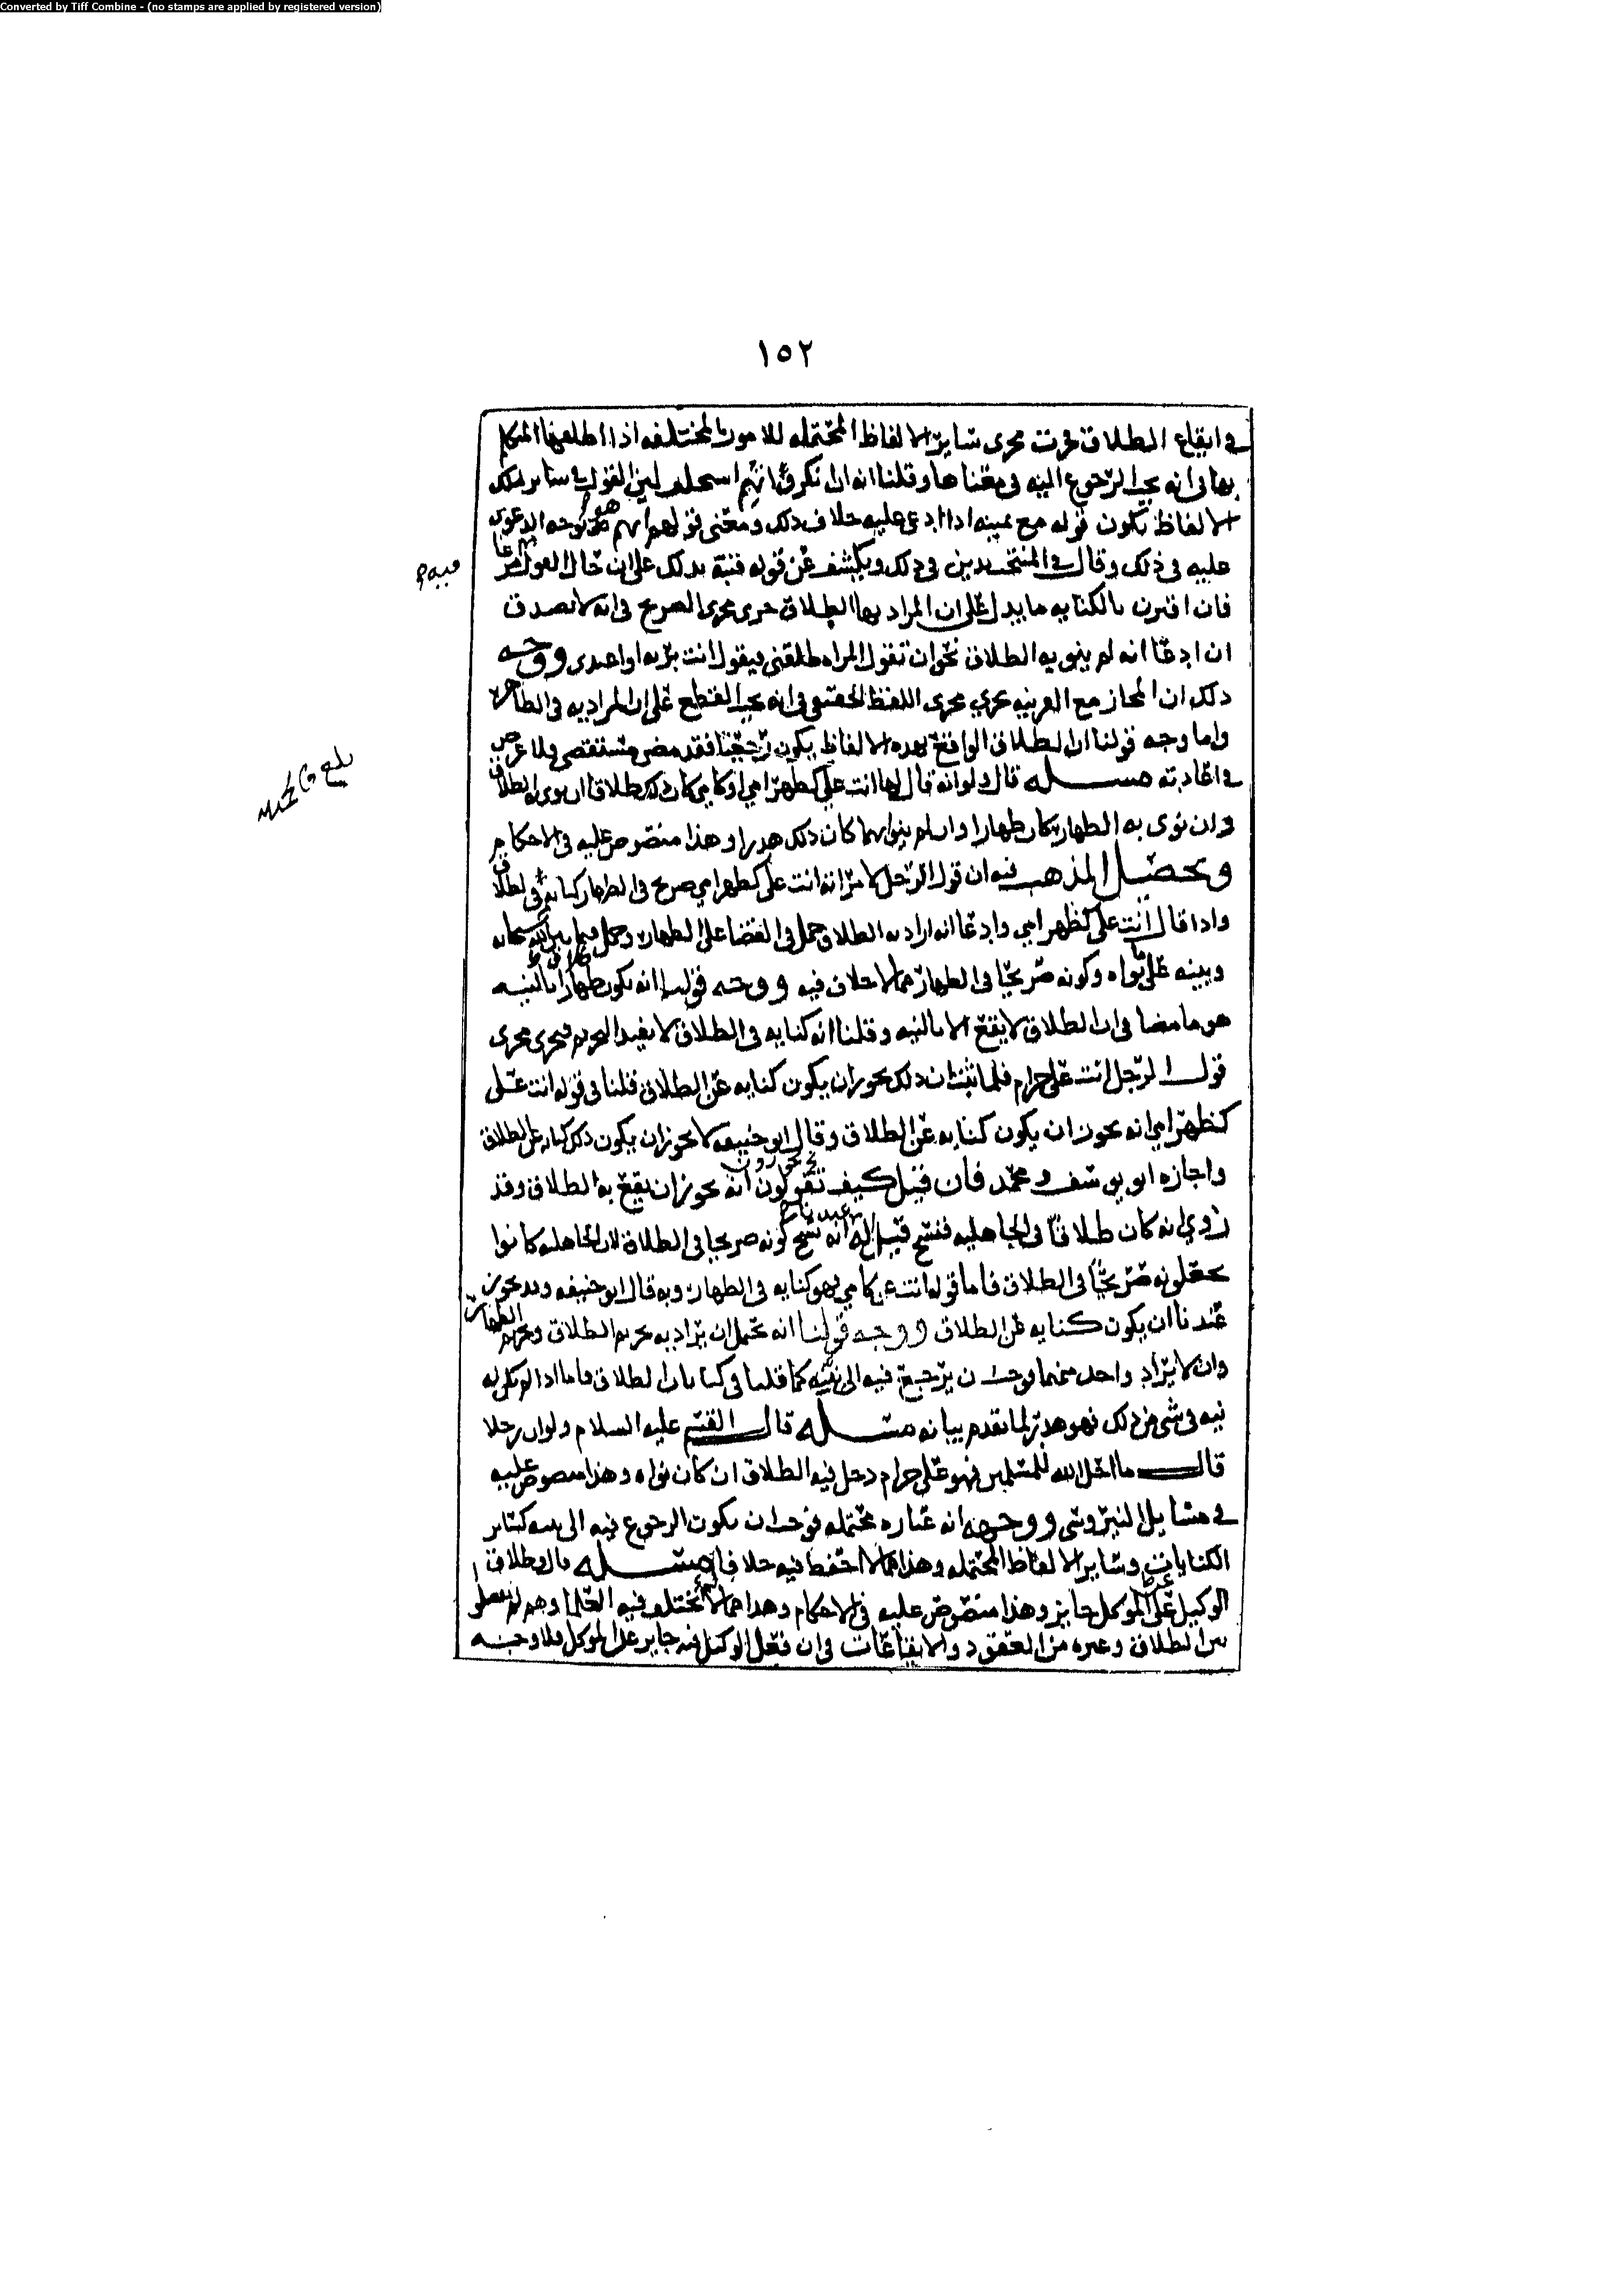 Converted by Tiff Combine - (no stamps are applied by registered version)
١٥٢
في ايقاع الطلاق فجرت مجرى سائر الالفاظ المحتمله للامور المختلفه اذا اطلقها المتكلم
بها في انه يجب الرجوع اليه في معناها وقلنا انه ان نكر في سائر تلك
الالفاظ يكون قوله مع يمينه اذا ادعي عليه خلاف ذلك ومعنى قولهم توجه الدعوى
عليه في ذلك وقال في المنتخب يدين في ذلك ويكشف عن قوله فنبه بذلك على ان حال
فان اقترن بالكنايه ما يدل على ان المراد بها الطلاق جرى مجرى الصريح في انه لا يصدق
ان ادعا انه لم ينو به الطلاق نحو ان تقول المراه طلقني فيقول انت بريه او اعتدي ووجه
ذلك ان المجاز مع القرينه يجري مجرى اللفظ الحقيقي في انه يجب القطع على ان المراد به في الظاهر
واما وجه قولنا ان الطلاق الواقع بهذه الالفاظ يكون رجعيا فقد مضى مستقصى فلا غرض
في اعادته مسله قال ولو انه قال لها انت علي كظهر امي او كامي كان ذلك طلاقا ان نوى به الطلاق
وان نوى به الظهار كان ظهارا وان لم ينو ايهما كان ذلك هدرا وهذا منصوص عليه في الاحكام
وتحصيل المذهب فيه ان قول الرجل لامراته انت علي كظهر امي صريح في الظهار كنايه في الطلاق
واذا قال انت علي كظهر امي وادعا انه اراد به الطلاق حمل في القضا على الظهار وحمل فيما بين الله سبحانه
وبينه على ما نواه وكونه صريحا في الظهار مما لا خلاف فيه ووجه قولنا انه يكون بالنيه
هو ما مضا في ان الطلاق لا يقع الا بالنيه وقلنا انه كنايه في الطلاق لا يفيد التحريم فيجرى مجرى
قول الرجل انت علي حرام فلما ثبت ان ذلك يجوز ان يكون كنايه عن الطلاق قلنا في قوله انت علي
كظهر امي انه يجوز ان يكون كنايه عن الطلاق وقال ابو حنيفه لا يجوز ان يكون ذلك كنايه عن الطلاق
واجازه ابو يوسف ومحمد فان قيل كيف تقولون انه يجوز ان يقع به الطلاق وقد
روي انه كان طلاقا في الجاهليه فنسخ قيل له انه نسخ كونه صريحا في الطلاق لان الجاهليه كانوا
يجعلونه صريحا في الطلاق فاما قوله انت علي كامي فهو كنايه في الظهار وبه قال ابو حنيفه وقد يجوز
عندنا ان يكون كنايه عن الطلاق ووجه قولنا انه يحتمل ان يراد به تحريم الطلاق وتحريم الظهار
وان لا يراد واحد منهما فوجب ان يرجع فيه الى نيته كما قلنا في كنايات الطلاق فاما اذا لم تكن له
نيه في شي من ذلك فهو هدر لما تقدم بيانه مسله قال القسم عليه السلام ولو ان رجلا
قال ما احل الله للمسلمين فهو علي حرام دخل فيه الطلاق ان كان نواه وهذا منصوص عليه
في مسايل النيروسي ووجهه انه عباره محتمله فوجب ان يكون الرجوع فيه الى نيته كسائر
الكنايات وسائر الالفاظ المحتمله وهذا مما لا احفظ فيه خلافا مسله قال وطلاق
الوكيل عن الموكل جايز وهذا منصوص عليه في الاحكام وهذا مما لا يختلف فيه العلما وهم لم يفصلوا
بين الطلاق وغيره من العقود والايقاعات في ان فعل الوكيل فيه جايز على الموكل فلا وجه